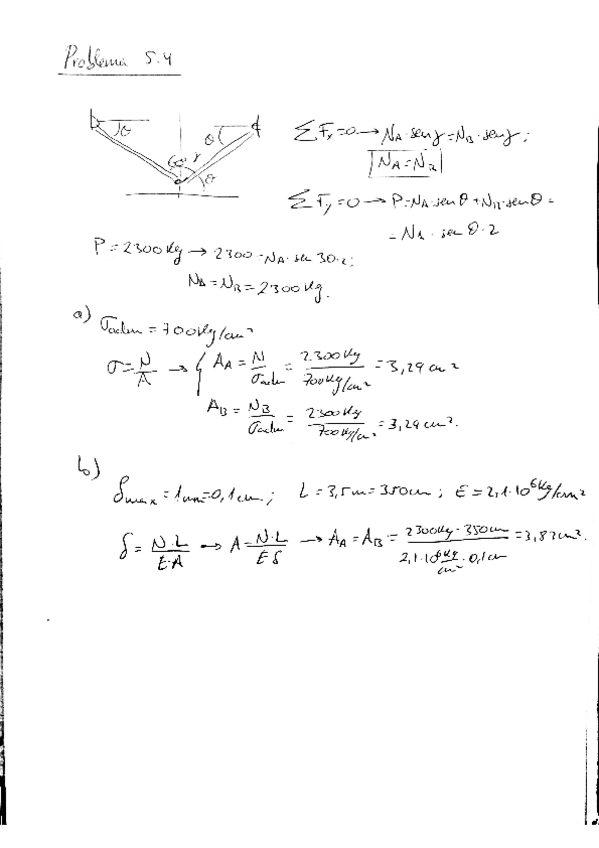 Problema 5.4
θ θ
γ θ
∑Fx=0→NA·senγ=NB·senγ;
NA=NB
∑Fy=0→P=NA·senθ+NB·senθ=
=NA·senθ·2
P=2300Kg→2300=NA·sen30·2;
NA=NB=2300Kg.
a) σadm=700Kg/cm²
σ=N/A → { AA=N/σadm=2300Kg/700Kg/cm²=3,29cm²
AB=NB/σadm=2300Kg/700Kg/cm²=3,29cm².
b)
δmax=1mm=0,1cm.; L=3,5m=350cm; E=2,1·10⁶Kg/cm²
δ=N·L/E·A → A=N·L/Eδ → AA=AB=2300Kg·350cm/2,1·10⁶Kg/cm²·0,1cm=3,83cm².